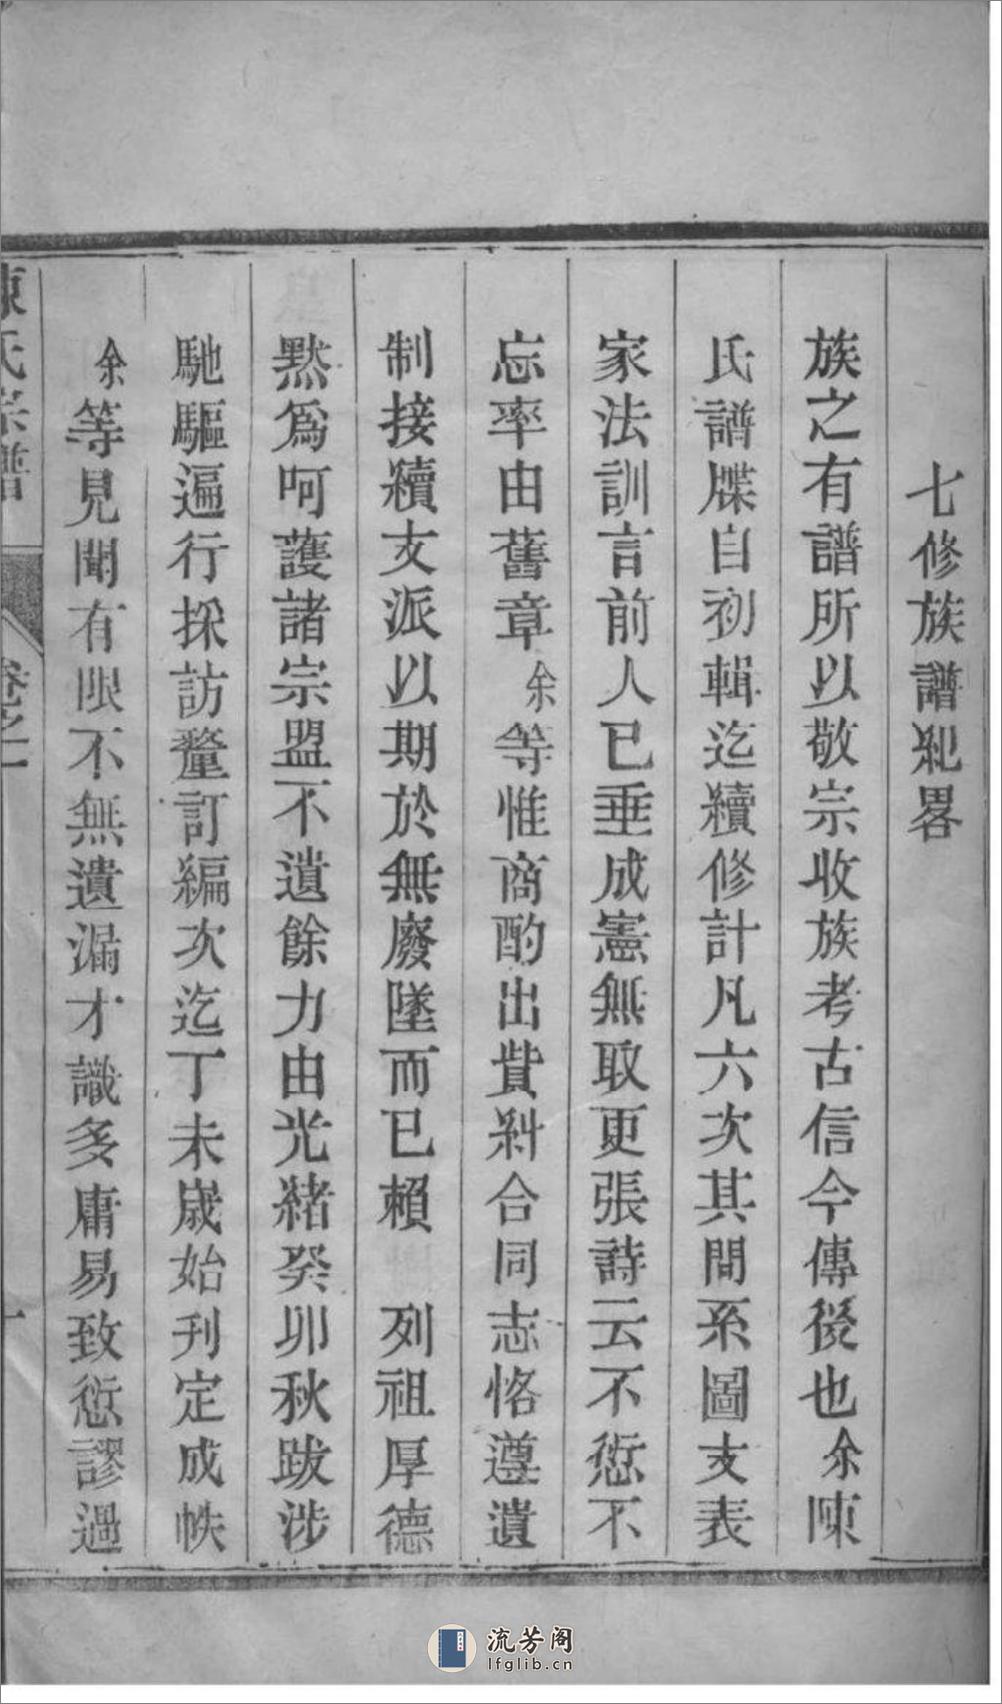 七修族譜紀畧
族之有譜所以敬宗收族考古信今傳後也余陳
氏譜牒自初輯迄續修計凡六次其間系圖支表
家法訓言前人已垂成憲無取更張詩云不愆不
忘率由舊章余等惟商酌出貲糾合同志恪遵遺
制接續支派以期於無廢墜而已賴　列祖厚德
黙爲呵護諸宗盟不遺餘力由光緒癸卯秋跋涉
馳驅遍行採訪釐訂編次迄丁未嵗始刋定成帙
余等見聞有限不無遺漏才識多庸易致愆謬過
陳氏宗譜　卷之一　一
流芳阁
lfglib.cn